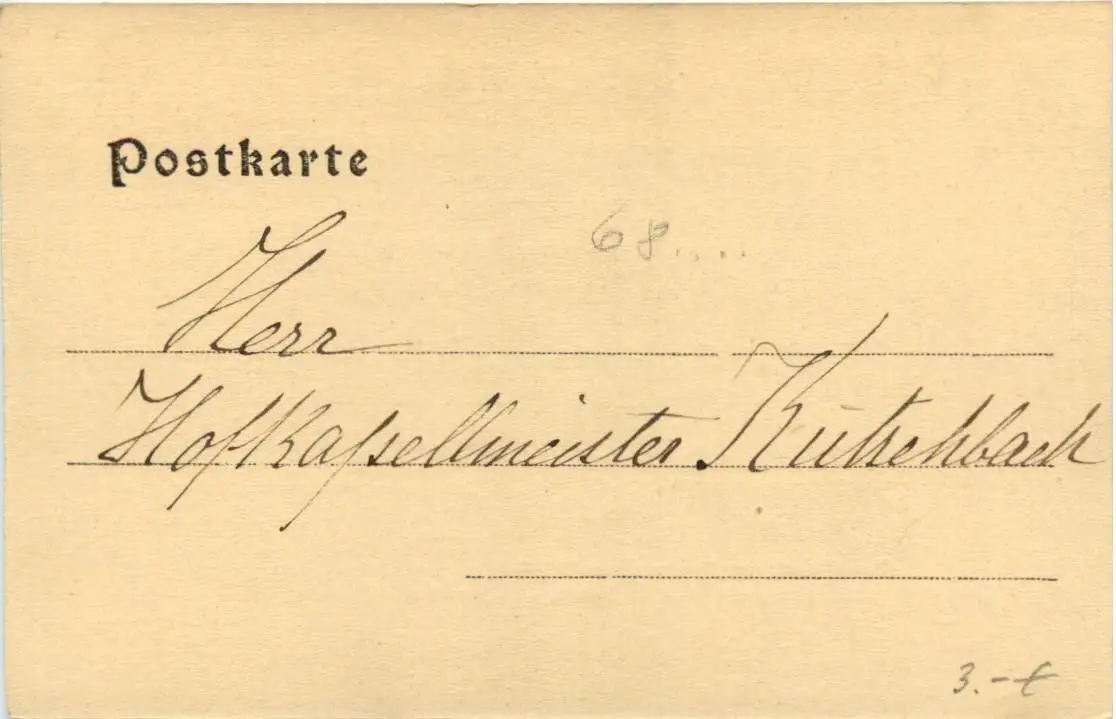 Postkarte
68....
Herr
Hofkapellmeister Kutschbach
3.-€